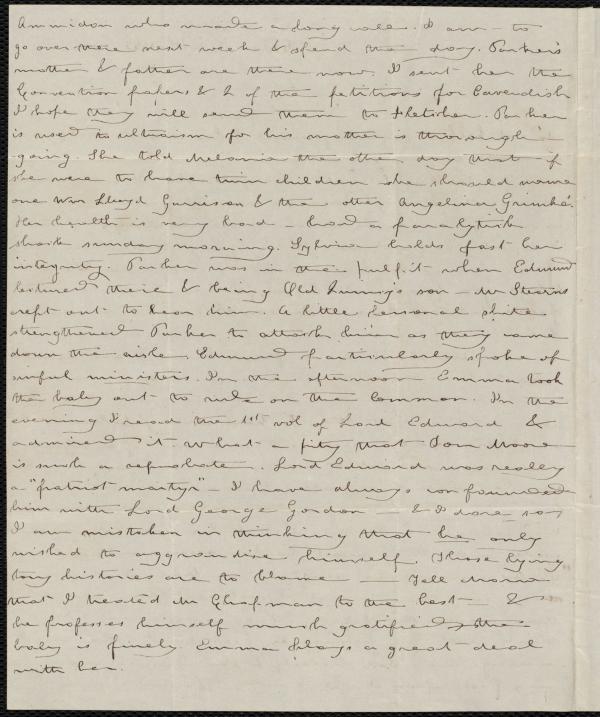 Ammidon who made a long call. I am to
go over there next week & spend the day. Parker's
mother & father are there now. I sent her the
Convention papers & 2 of the petitions for Cavendish
I hope they will send them to Fletcher. Parker
is used to ultraism for his mother is thorough
going. She told Melania the other day that if
she were to have twin children she should name
one Wm Lloyd Garrison & the other Angelina Grimké.
Her health is very bad - had a paralytick
shock sunday morning. Sylvia holds fast her
integrity. Parker was in the pulpit when Edmund
lectured there & being Old Quincy's son - Mr Stearns
crept out to hear him. A little personal spite
strengthened Parker to attack him as they came
down the aisle. Edmund particularly spoke of
sinful ministers. In the afternoon Emma took
the baby out to ride on the Common. In the
evening I read the 1st vol of Lord Edward &
admired it. What a pity that Tom Moore
is such a reprobate. Lord Edward was really
a "patriot martyr" - I have always confounded
him with Lord George Gordon - & I dare say
I am mistaken in thinking that he only
wished to aggrandise himself. Those lying
tory histories are to blame - Tell
that I treated Mr Chapman to the best - &
he professes himself much gratified the
baby is finely Emma plays a great deal
with her.